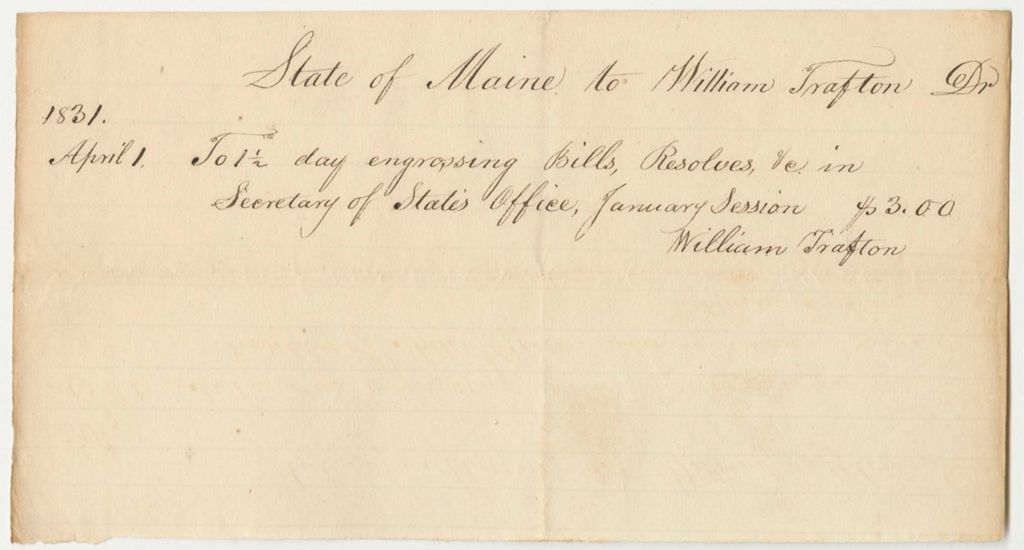 State of Maine to William Trafton Dr
1831.
April 1. To 1½ day engrossing Bills, Resolves, &c. in
Secretary of State's Office, January Session $3.00
William Trafton